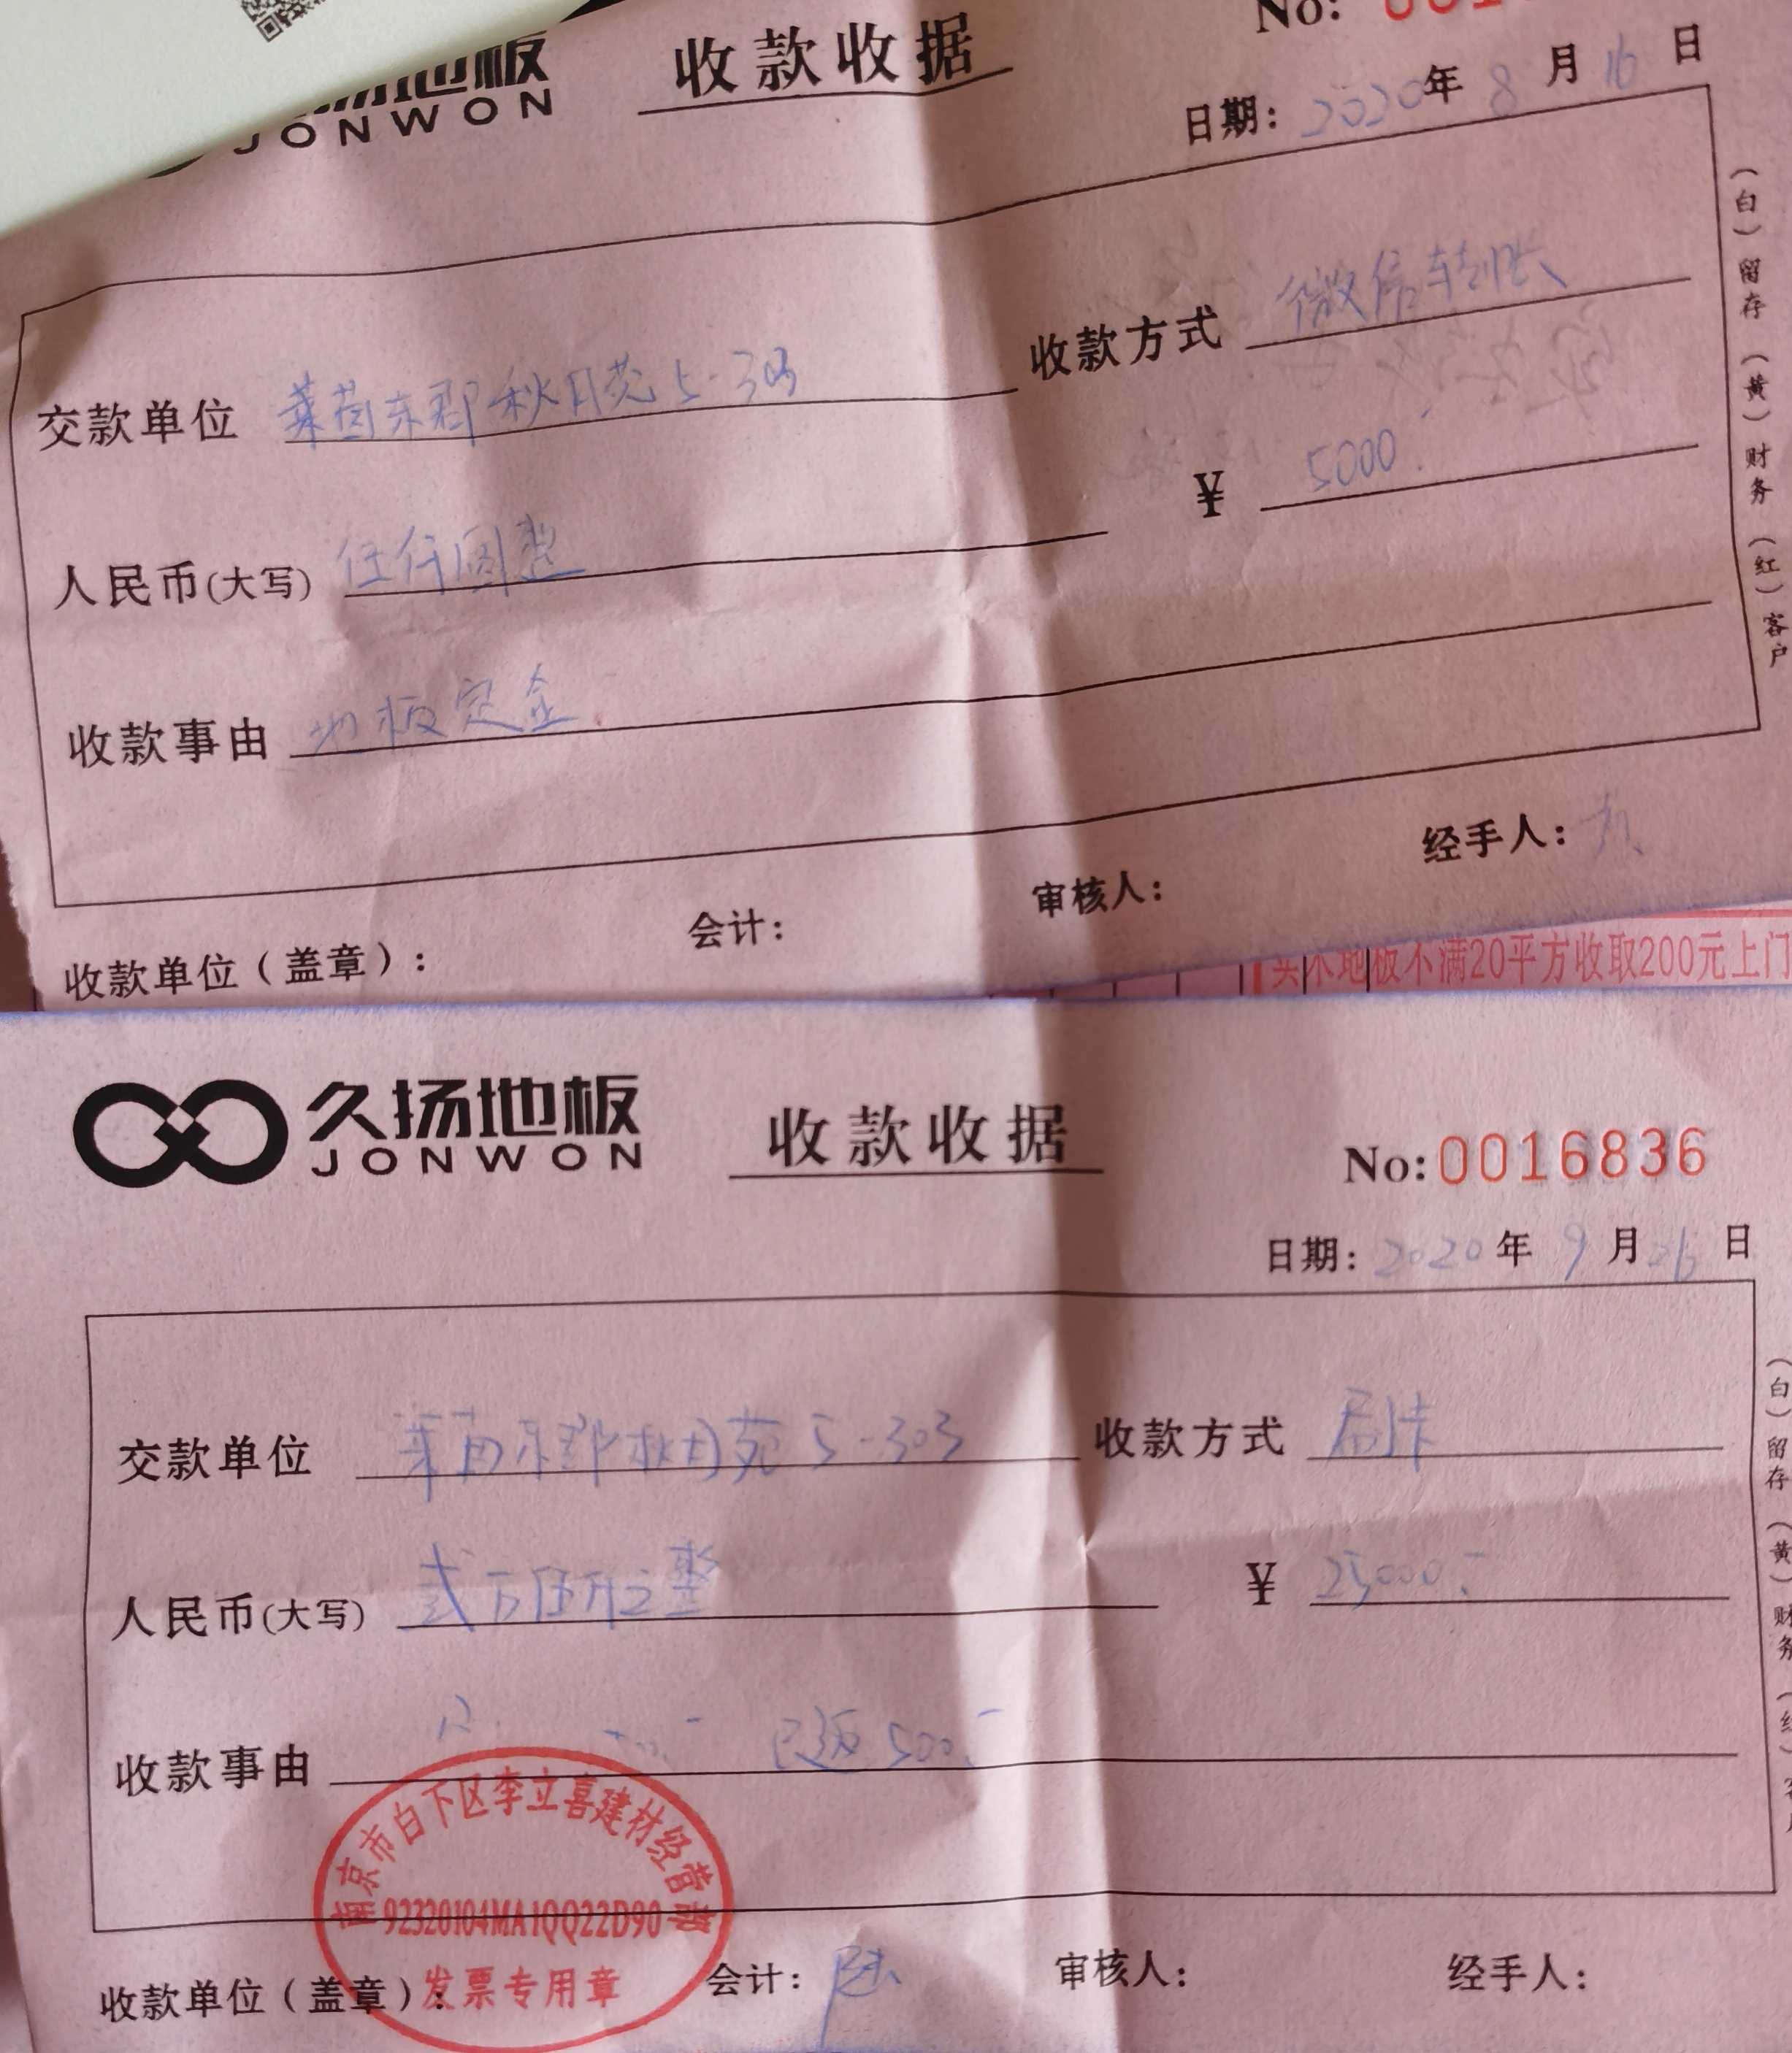 地板
JONWON
收款收据
No: 001
日期: 2020年 8 月 16 日
交款单位 莱茵东郡秋月苑5-303
收款方式 微信转账
人民币(大写) 伍仟圆整
¥ 5000.-
收款事由 地板定金
收款单位（盖章）：
会计：
审核人：
经手人：
（白）留存（黄）财务（红）客户
实木地板不满20平方收取200元上门
久扬地板
JONWON
收款收据
No:0016836
日期: 2020年 9 月 26 日
交款单位 莱茵东郡秋月苑5-303
收款方式 刷卡
人民币(大写) 贰万伍仟元整
¥ 25000.-
收款事由 已返500.-
南京市白下区李立喜建材经营部
92320104MA1QQ22D90
发票专用章
收款单位（盖章）：
会计：陆
审核人：
经手人：
（白）留存（黄）财务